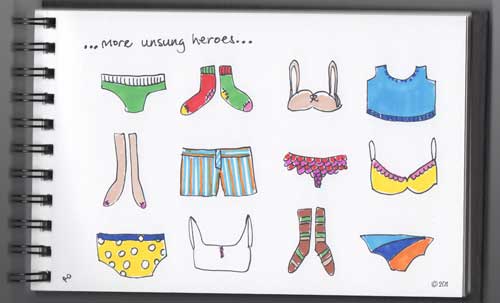 ...more unsung heroes...
© 2011